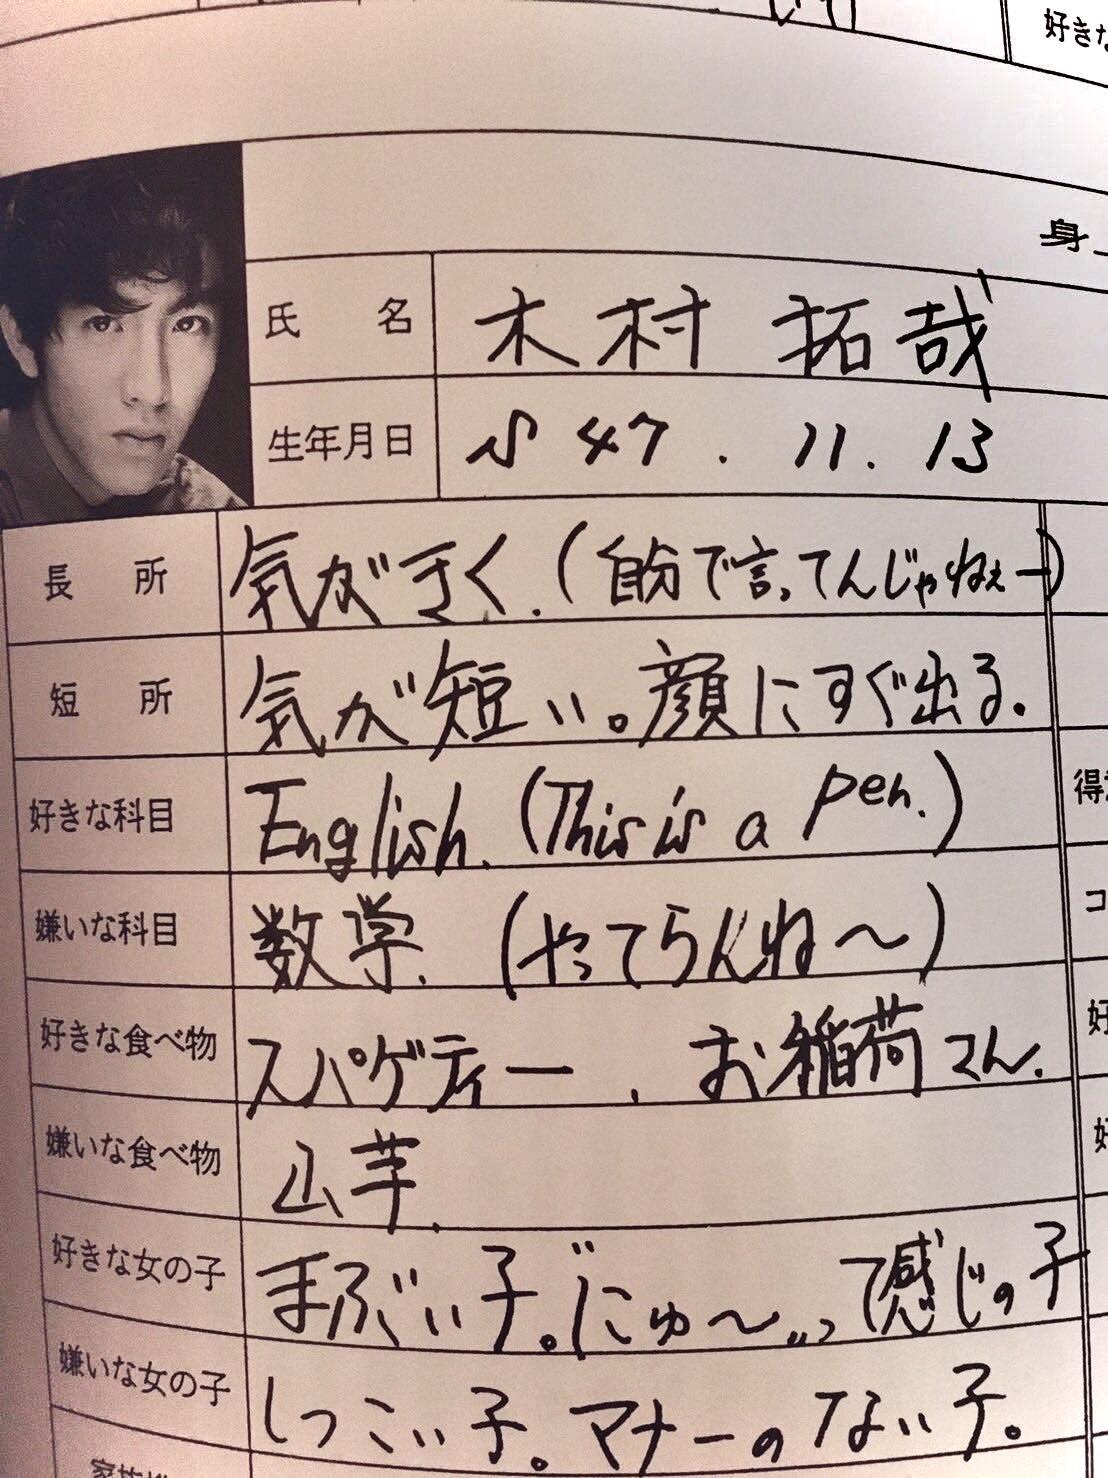 好きな
身上
氏　名　木村 拓哉
生年月日　S 47. 11. 13
長　所　気がきく.(自分で言ってんじゃねぇー)
短　所　気が短い。顔にすぐ出る。
好きな科目　English. (This is a pen.)
得意
嫌いな科目　数学. (やってらんね〜)
コ
好きな食べ物　スパゲティー, お稲荷さん.
好
嫌いな食べ物　山芋.
好
好きな女の子　まぶい子。にゅ〜っって感じの子
嫌いな女の子　しつこい子。マナーのない子。
家族